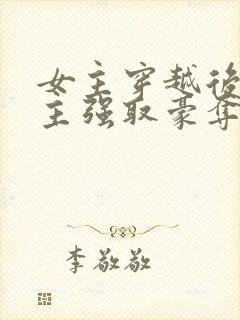 女主穿越後
主强取豪夺
李敬敬